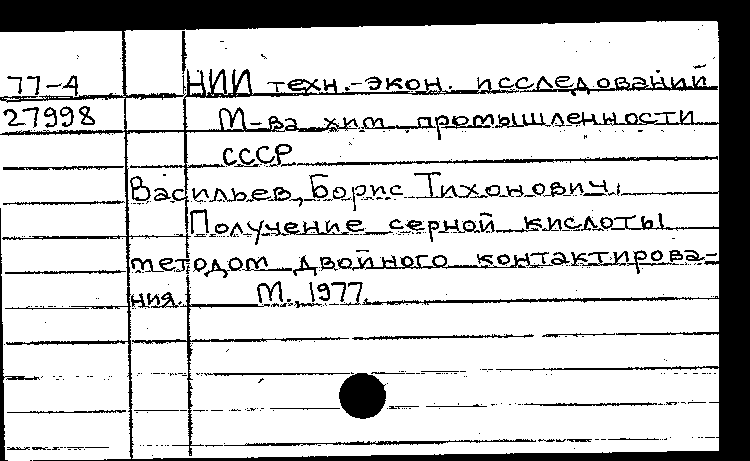 77-4 НИИ техн.-экон. исследований
27998 М-ва хим. промышленности
СССР
Васильев, Борис Тихонович.
Получение серной кислоты
методом двойного контактирова-
ния. М., 1977.